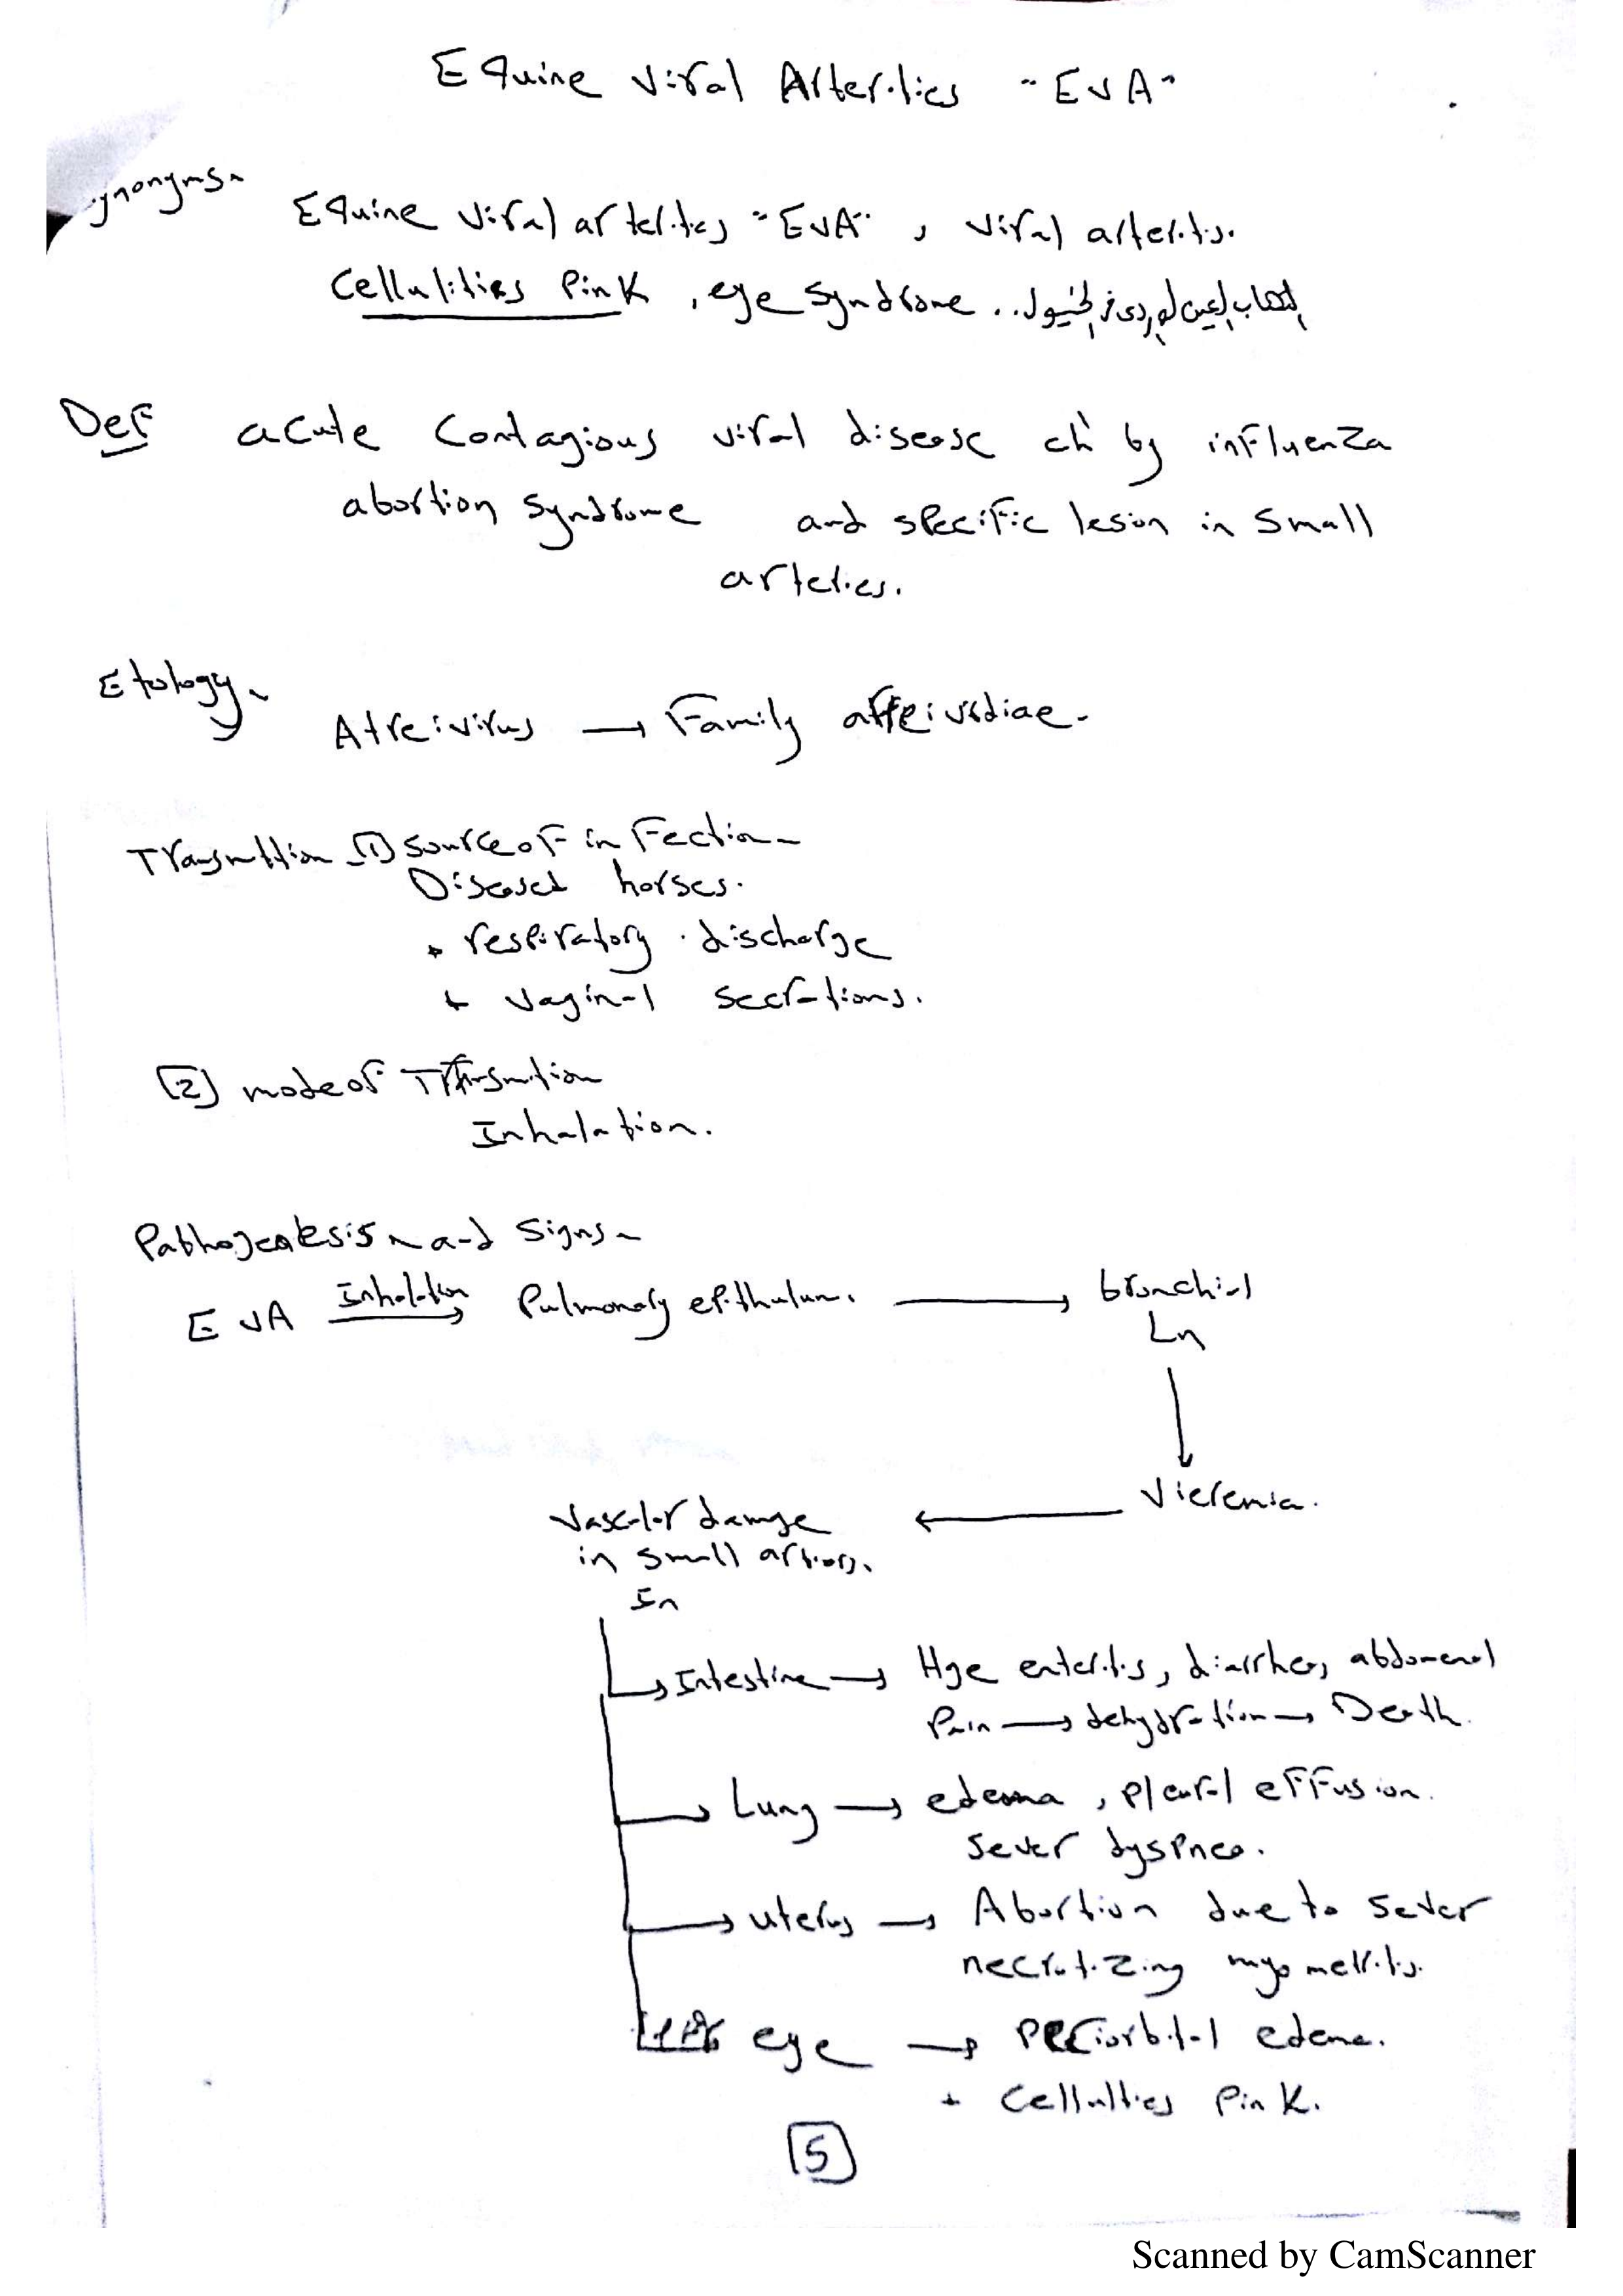 Equine viral Arteritics "EVA"
ynonyms
Equine viral arterities "EVA", viral arteritis.
Cellulities Pink, eye syndrome .. إلتهاب العين الوردى فى الخيول
Def acute Contagious viral disease ch by influenza
abortion syndrome and specific lesion in small
arteries.
Etology
Atreivirus → Family
Transmttion (1) source of infection
Diseased horses.
+ respiratory discharge
+ vaginal secrations.
[2] mode of Transmition
Inhalation.
Pathogenesis and Signs
EVA Inhalation → Pulmonary epithulum. → bronchial
Ln
↓
Vieremia.
Vascular damge ←
in small
In
→ Intestine → Hge enteritis, diarrhea, abdomenal
Pain → dehydration → Death.
→ Lung → edema, pleural effusion.
sever dyspnea.
→ uterus → Abortion due to sever
necrotizing myometritis.
eye → periorbital edema.
+ Cellulties Pink.
5
Scanned by CamScanner